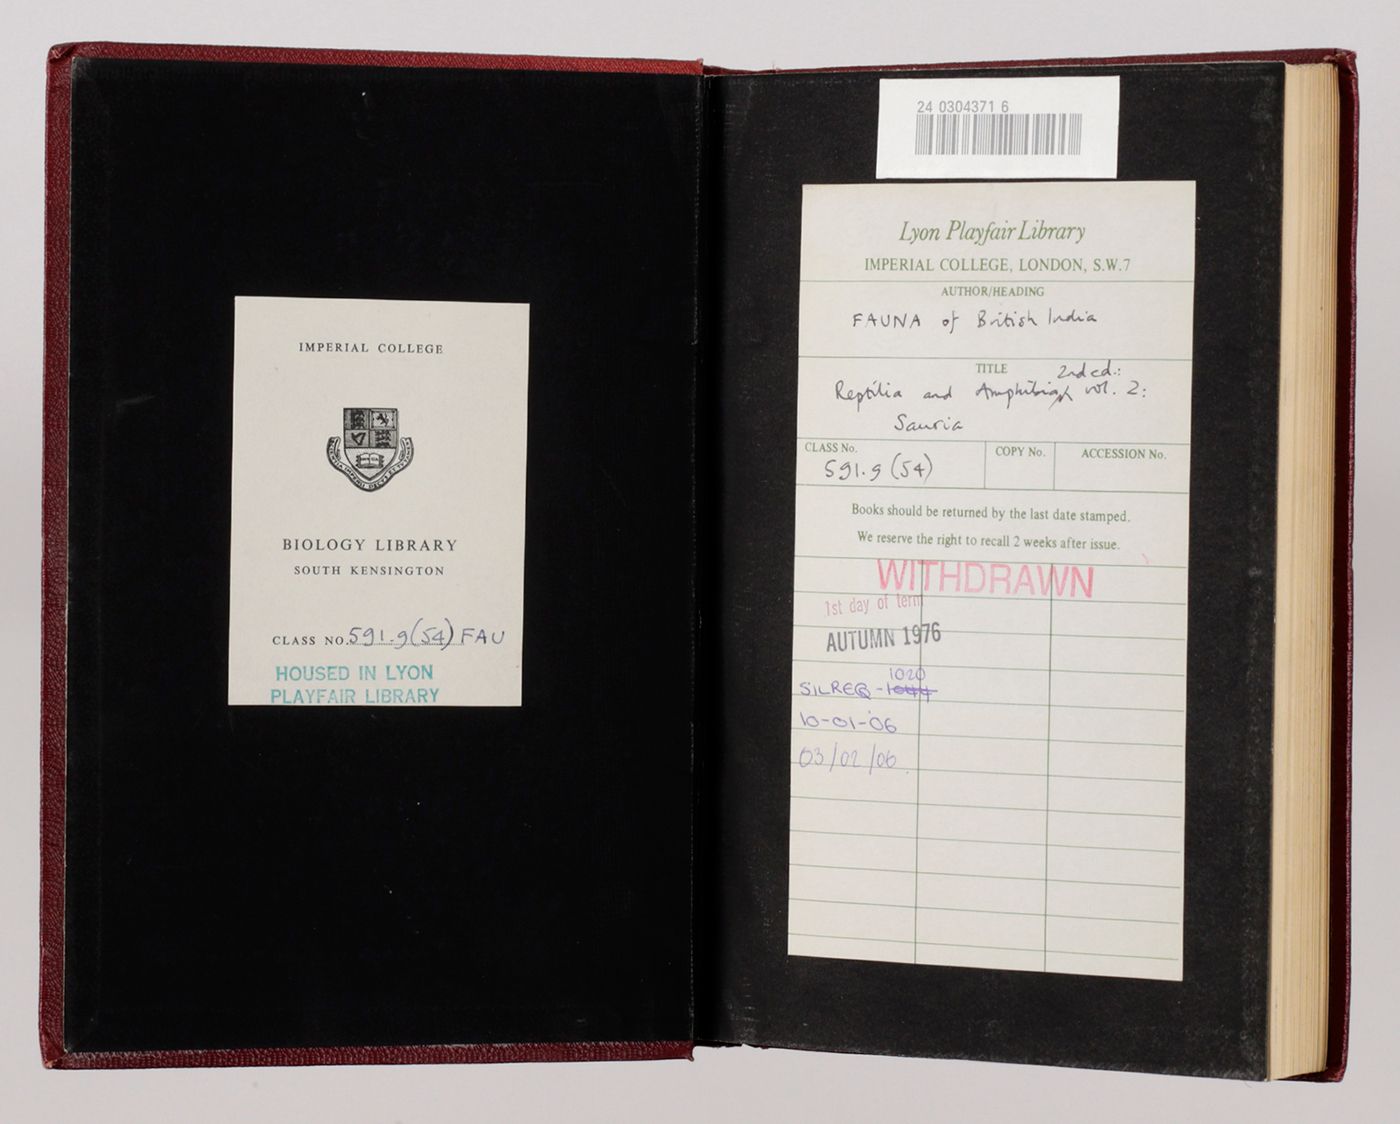 IMPERIAL COLLEGE
BIOLOGY LIBRARY
SOUTH KENSINGTON
CLASS NO. 591.9(54) FAU
HOUSED IN LYON
PLAYFAIR LIBRARY
24 0304371 6
Lyon Playfair Library
IMPERIAL COLLEGE, LONDON, S.W.7
AUTHOR/HEADING
FAUNA of British India
TITLE 2nd ed.:
Reptilia and Amphibia vol. 2:
Sauria
CLASS No. COPY No. ACCESSION No.
591.9 (54)
Books should be returned by the last date stamped.
We reserve the right to recall 2 weeks after issue.
WITHDRAWN
1st day of term
AUTUMN 1976
1020
SILREQ - 1044
10-01-06
03/02/06